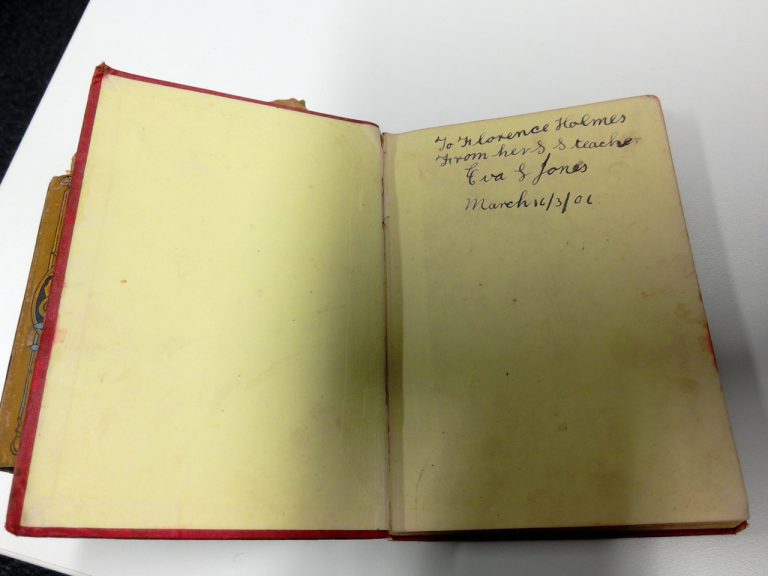 To Florence Holmes
From her S S teacher
Eva G Jones
March 16/3/06.